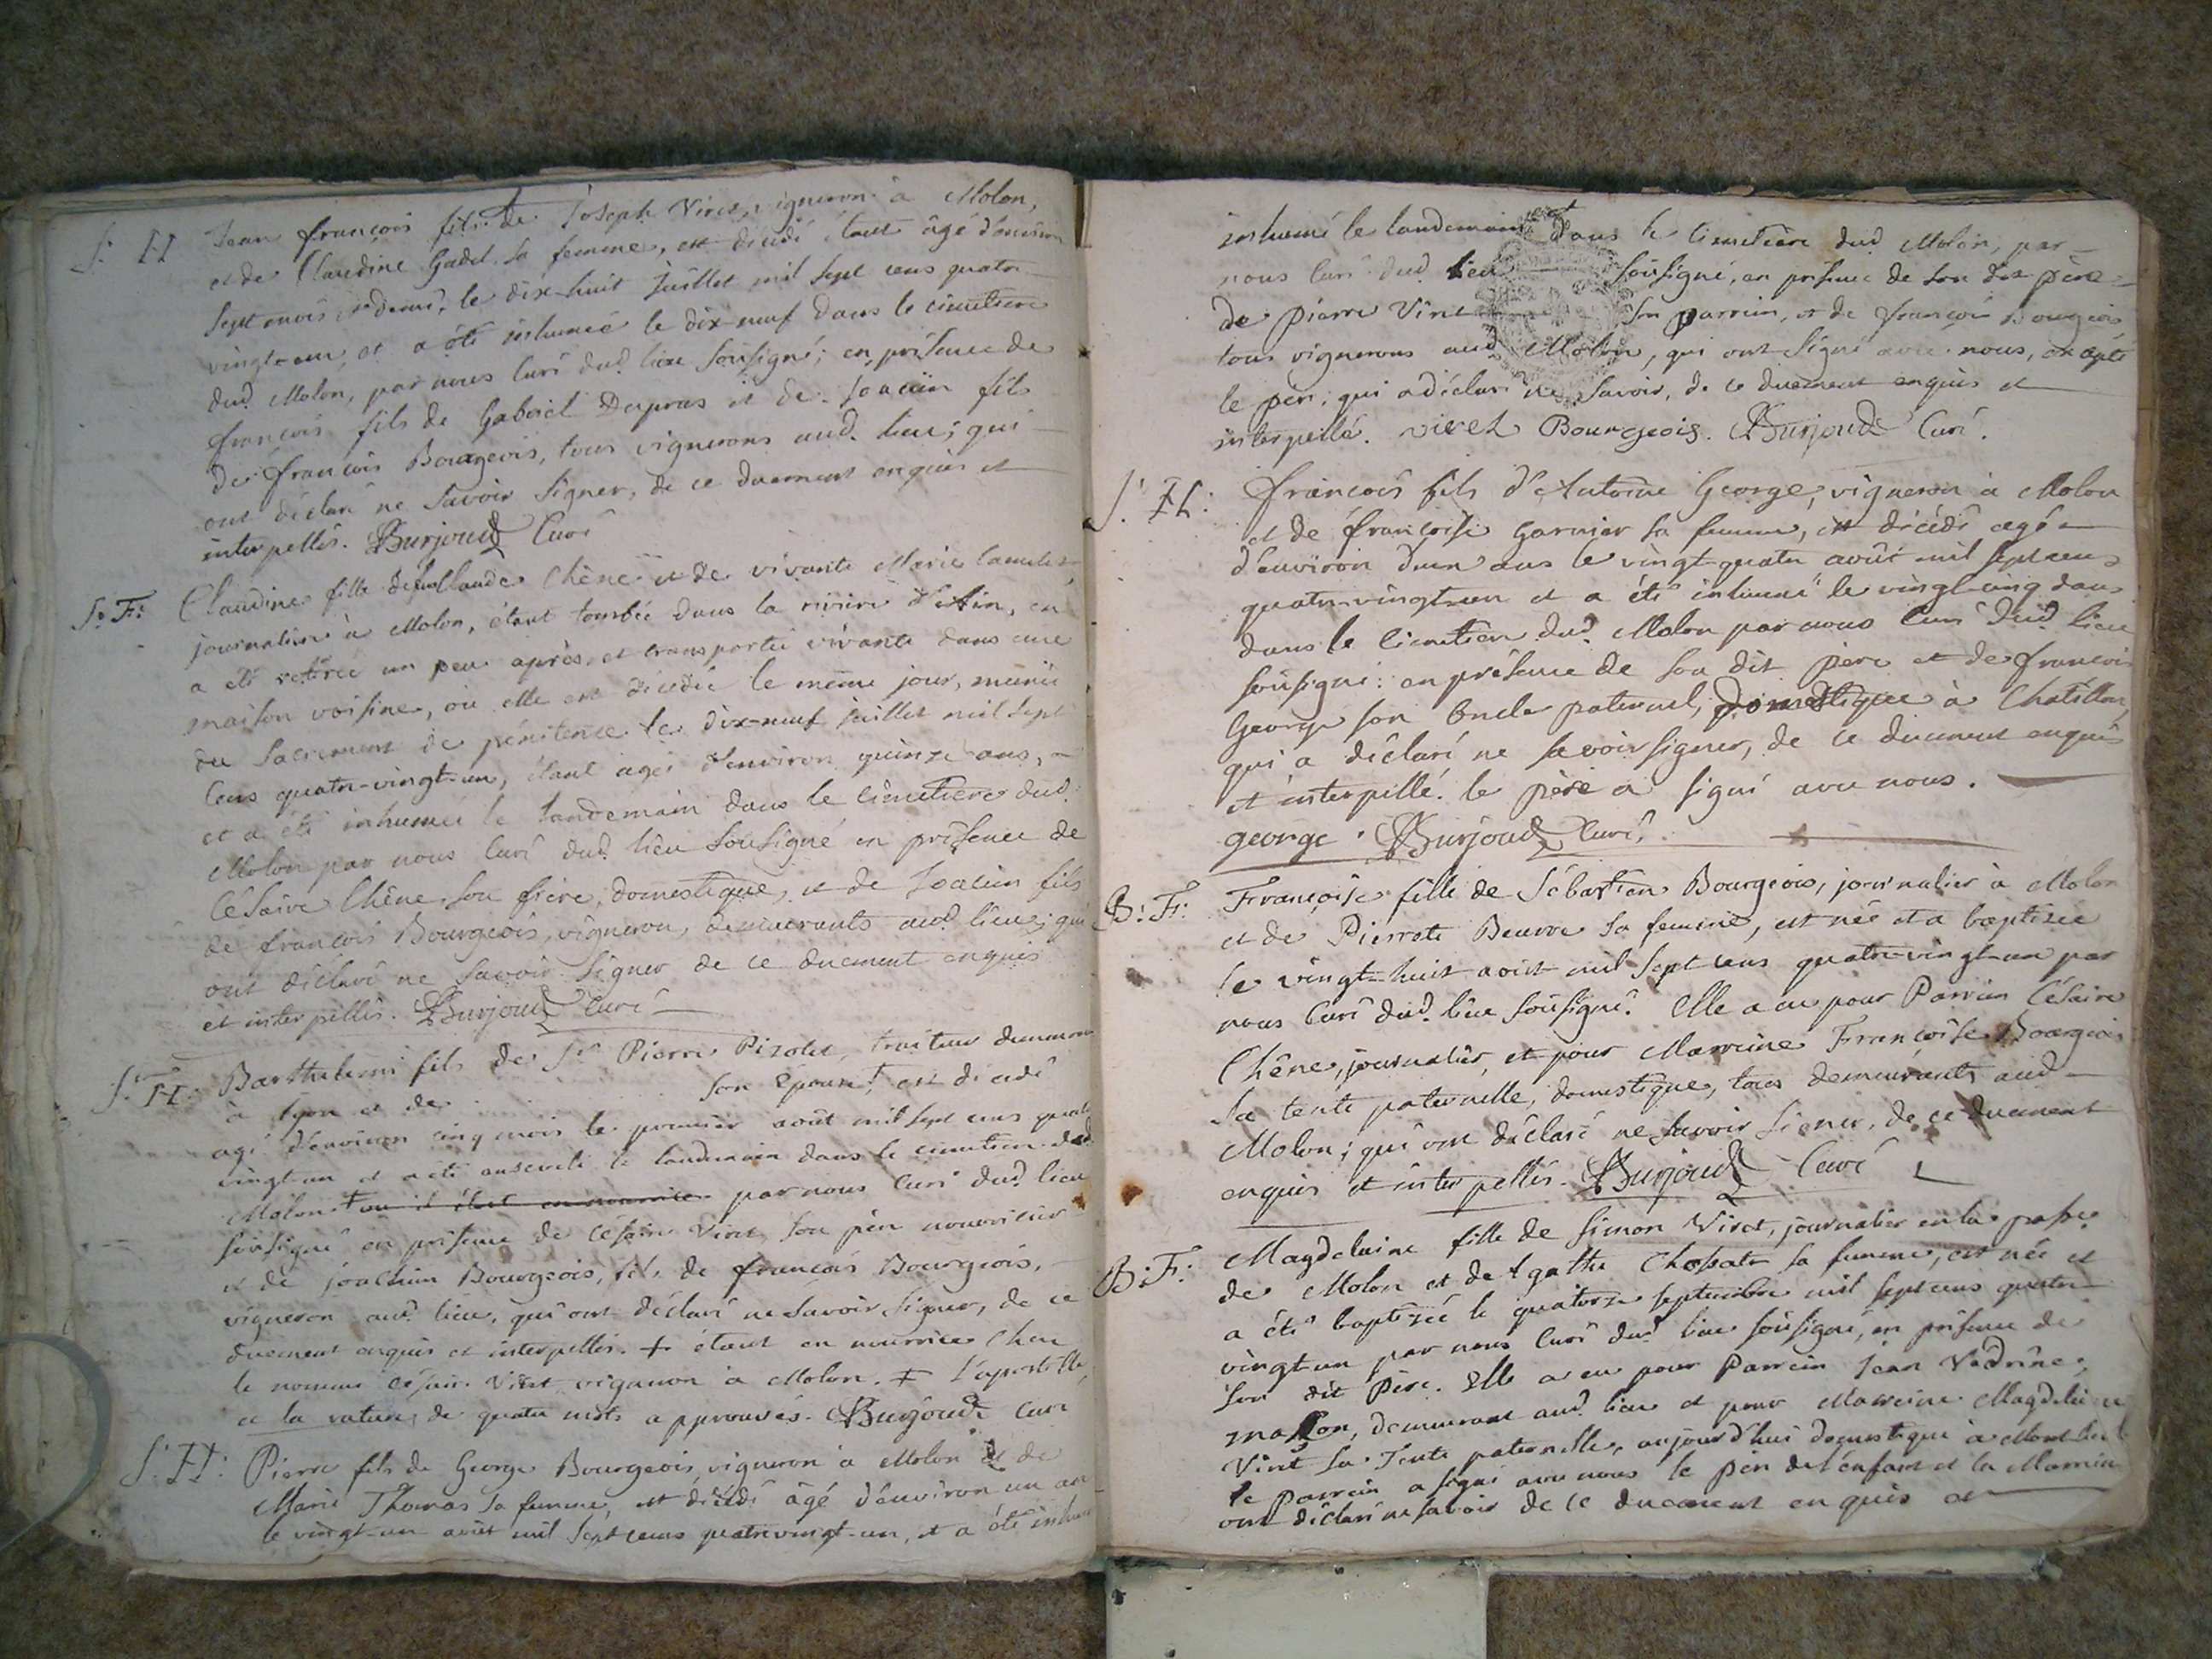 S. H Jean françois fils de Joseph Viret, vigneron à Molon,
et de Claudine Gadel sa femme, est décédé étant âgé d'environ
sept mois et demi, le dix-huit juillet mil sept cens quatre-
vingt-un, et a été inhumé le dix-neuf dans le cimetiere
dud. Molon, par nous Curé dud. lieu sousigné; en présence de
françois fils de Gabriel Dupras et de Joacim fils
de françois Bourgeois, tous vignerons aud. lieu; qui
ont déclaré ne savoir signer, de ce duement enquis et
interpellés. Burjoud Curé
S. F: Claudine fille de Chêne et de vivante Marie
journaliere à Molon, étant tombée dans la riviere d'Ain, en
a été retirée un peu après, et transportée vivante dans une
maison voisine, où elle est décédée le même jour, munie
du Sacrement de pénitence le dix-neuf juillet mil sept
Cens quatre-vingt-un, étant agée d'environ quinze ans,
et a été inhumée le landemain dans le cimetiere dud.
Molon par nous Curé dud. lieu sousigné en présence de
Césaire Chêne son frère, domestique, et de Joacim fils
de françois Bourgeois, vigneron, demeurants aud. lieu; qui
ont déclaré ne savoir signer de ce duement enquis
et interpellés. Burjoud Curé
S. H: Barthelemi fils de Sr. Pierre Pizolet, traiteur demeurant
à Lyon et de son Epouse, est décédé
agé d'environ cinq mois le premier août mil sept cens quatre
vingt-un et a été enseveli le landemain dans le cimetiere dud.
Molon + ou il étoit en nourrice par nous Curé dud. lieu
sousigné en présence de Cesaire Viret, son père nourricier
et de joachim Bourgeois, fils de françois Bourgeois,
vigneron aud. lieu, qui ont déclaré ne savoir signer, de ce
duement enquis et interpellés. + étant en nourrice chez
le nommé césaire Viret vigneron à Molon. + L'apostille
et la rature de quatre mots approuvés. Burjoud Curé
S. H: Pierre fils de George Bourgeois, vigneron à Molon et de
Marie Thomas sa femme, est décédé âgé d'environ un an
le vingt-un août mil sept cens quatre vingt-un, et a été
inhumé le landemain dans le cimetière dud. Molon, par
nous Curé dud. lieu sousigné, en présence de son dit père
de Pierre Viret son parrain, et de françois Bourgeois
tous vignerons aud. Molon, qui ont signé avec nous, excepté
le père, qui a déclaré ne savoir, de ce duement enquis et
interpellé. viret Bourgeois. Burjoud Curé.
S. H: françois fils d'Antoine George, vigneron à Molon
et de françoise Garnier sa femme, est décédé agé
d'environ d'un ans le vingt-quatre août mil sept cens
quatre-vingt-un et a été inhumé le vingt-cinq dans
dans le cimetiere dud. Molon par nous Curé dud. lieu
sousigné: en présence de son dit père et de françois
George son oncle paternel, domestique à Chatillon,
qui a déclaré ne savoir signer, de ce duement enquis
et interpellé. le père a signé avec nous.
george. Burjoud Curé.
B: F: Françoise fille de Sébastien Bourgeois, journalier à Molon
et de Pierrete sa femme, est née et a baptisée
le vingt-huit août mil sept cens quatre-vingt-un par
nous Curé dud. lieu sousigné. Elle a eu pour Parrain Césaire
Chêne, journalier, et pour Marreine Françoise Bourgeois
sa tente paternelle, domestique, tous demeurants aud
Molon; qui ont déclaré ne savoir signer, de ce duement
enquis et interpellés. Burjoud Curé
B: F: Magdelaine fille de Simon Viret, journalier en la psse
de Molon et de Agathe sa femme, est née et
a été baptisée le quatorze septembre mil sept cens quatre
vingt-un par nous Curé dud. lieu sousigné, en présence de
son dit Père. Elle a eu pour Parrain Jean Vedrine,
masson, demeurant aud. lieu et pour Marreine Magdelaine
Viret sa Tente paternelle, aujourd'hui domestique à
le parrain a signé avec nous le père de l'enfant et la Marreine
ont déclaré ne savoir de ce duement enquis et